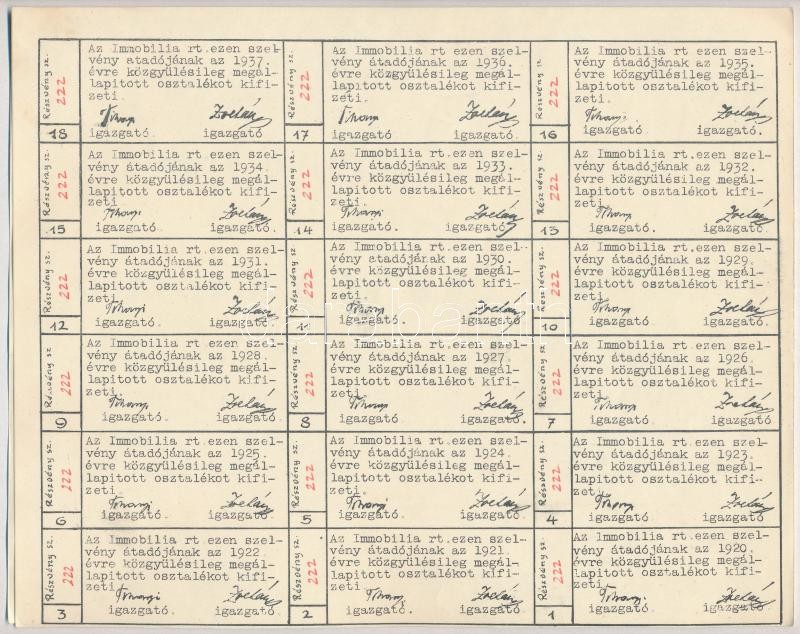 Részvény sz.
222
18
Az Immobilia rt.ezen szel-
vény átadójának az 1937.
évre közgyülésileg megál-
lapitott osztalékot kifi-
zeti.
igazgató igazgató
Részvény sz.
222
17
Az Immobilia rt ezen szel-
vény átadójának az 1936.
évre közgyülésileg megál-
lapitott osztalékot kifi-
zeti.
igazgató. igazgató
Részvény sz.
222
16
Az Immobilia rt.ezen szel-
vény átadójának az 1935.
évre közgyülésileg megál-
lapitott osztalékot kifi-
zeti.
igazgató igazgató.
Részvény sz.
222
15
Az Immobilia rt.ezen szel-
vény átadójának az 1934.
évre közgyülésileg megál-
lapitott osztalékot kifi-
zeti
igazgató. igazgató.
Részvény sz.
222
14
Az Immobilia rt.ezen szel-
vény átadójának az 1933.
évre közgyülésileg megál-
lapitott osztalékot kifi-
zeti.
igazgató. igazgató.
Részvény sz.
222
13
Az Immobilia rt.ezen szel-
vény átadójának az 1932.
évre közgyülésileg megál-
lapitott osztalékot kifi-
zeti.
igazgató. igazgató.
Részvény sz.
222
12
Az Immobilia rt.ezen szel-
vény átadójának az 1931.
évre közgyülésileg megál-
lapitott osztalékot kifi-
zeti.
igazgató. igazgató.
Részvény sz.
222
11
Az Immobilia rt.ezen szel-
vény átadójának az 1930.
évre közgyülésileg megál-
lapitott osztalékot kifi-
zeti.
igazgató. igazgató.
Részvény sz.
222
10
Az Immobilia rt.ezen szel-
vény átadójának az 1929.
évre közgyülésileg megál-
lapitott osztalékot kifi-
zeti.
igazgató. igazgató.
Részvény sz.
222
9
Az Immobilia rt.ezen szel-
vény átadójának az 1928.
évre közgyülésileg megál-
lapitott osztalékot kifi-
zeti.
igazgató. igazgató.
Részvény sz.
222
8
Az Immobilia rt.ezen szel-
vény átadójának az 1927.
évre közgyülésileg megál-
lapitott osztalékot kifi-
zeti.
igazgató. igazgató.
Részvény sz.
222
7
Az Immobilia rt.ezen szel-
vény átadójának az 1926.
évre közgyülésileg megál-
lapitott osztalékot kifi-
zeti.
igazgató. igazgató.
Részvény sz.
222
6
Az Immobilia rt.ezen szel-
vény átadójának az 1925.
évre közgyülésileg megál-
lapitott osztalékot kifi-
zeti.
igazgató. igazgató.
Részvény sz.
222
5
Az Immobilia rt.ezen szel-
vény átadójának az 1924.
évre közgyülésileg megál-
lapitott osztalékot kifi-
zeti.
igazgató. igazgató.
Részvény sz.
222
4
Az Immobilia rt.ezen szel-
vény átadójának az 1923.
évre közgyülésileg megál-
lapitott osztalékot kifi-
zeti.
igazgató. igazgató.
Részvény sz.
222
3
Az Immobilia rt.ezen szel-
vény átadójának az 1922.
évre közgyülésileg megál-
lapitott osztalékot kifi-
zeti.
igazgató. igazgató.
Részvény sz.
222
2
Az Immobilia rt.ezen szel-
vény átadójának az 1921.
évre közgyülésileg megál-
lapitott osztalékot kifi-
zeti.
igazgató. igazgató.
Részvény sz.
222
1
Az Immobilia rt.ezen szel-
vény átadójának az 1920.
évre közgyülésileg megál-
lapitott osztalékot kifi-
zeti.
igazgató. igazgató.